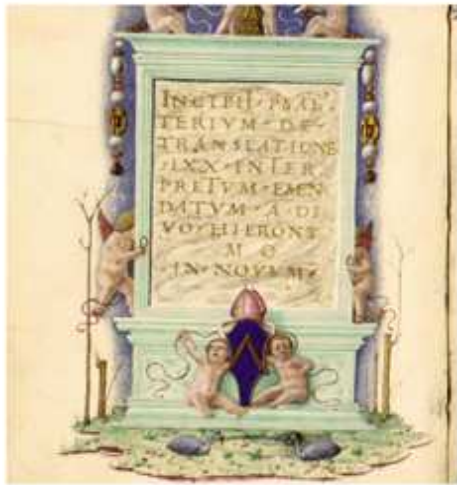 INCIPIT · PSAL
TERIVM · DE ·
TRANSLATIONE
· LXX · INTER
PRETVM · EMEN
DATVM · A · DI
VO · HIERONY
M O
· IN · NOVVM ·